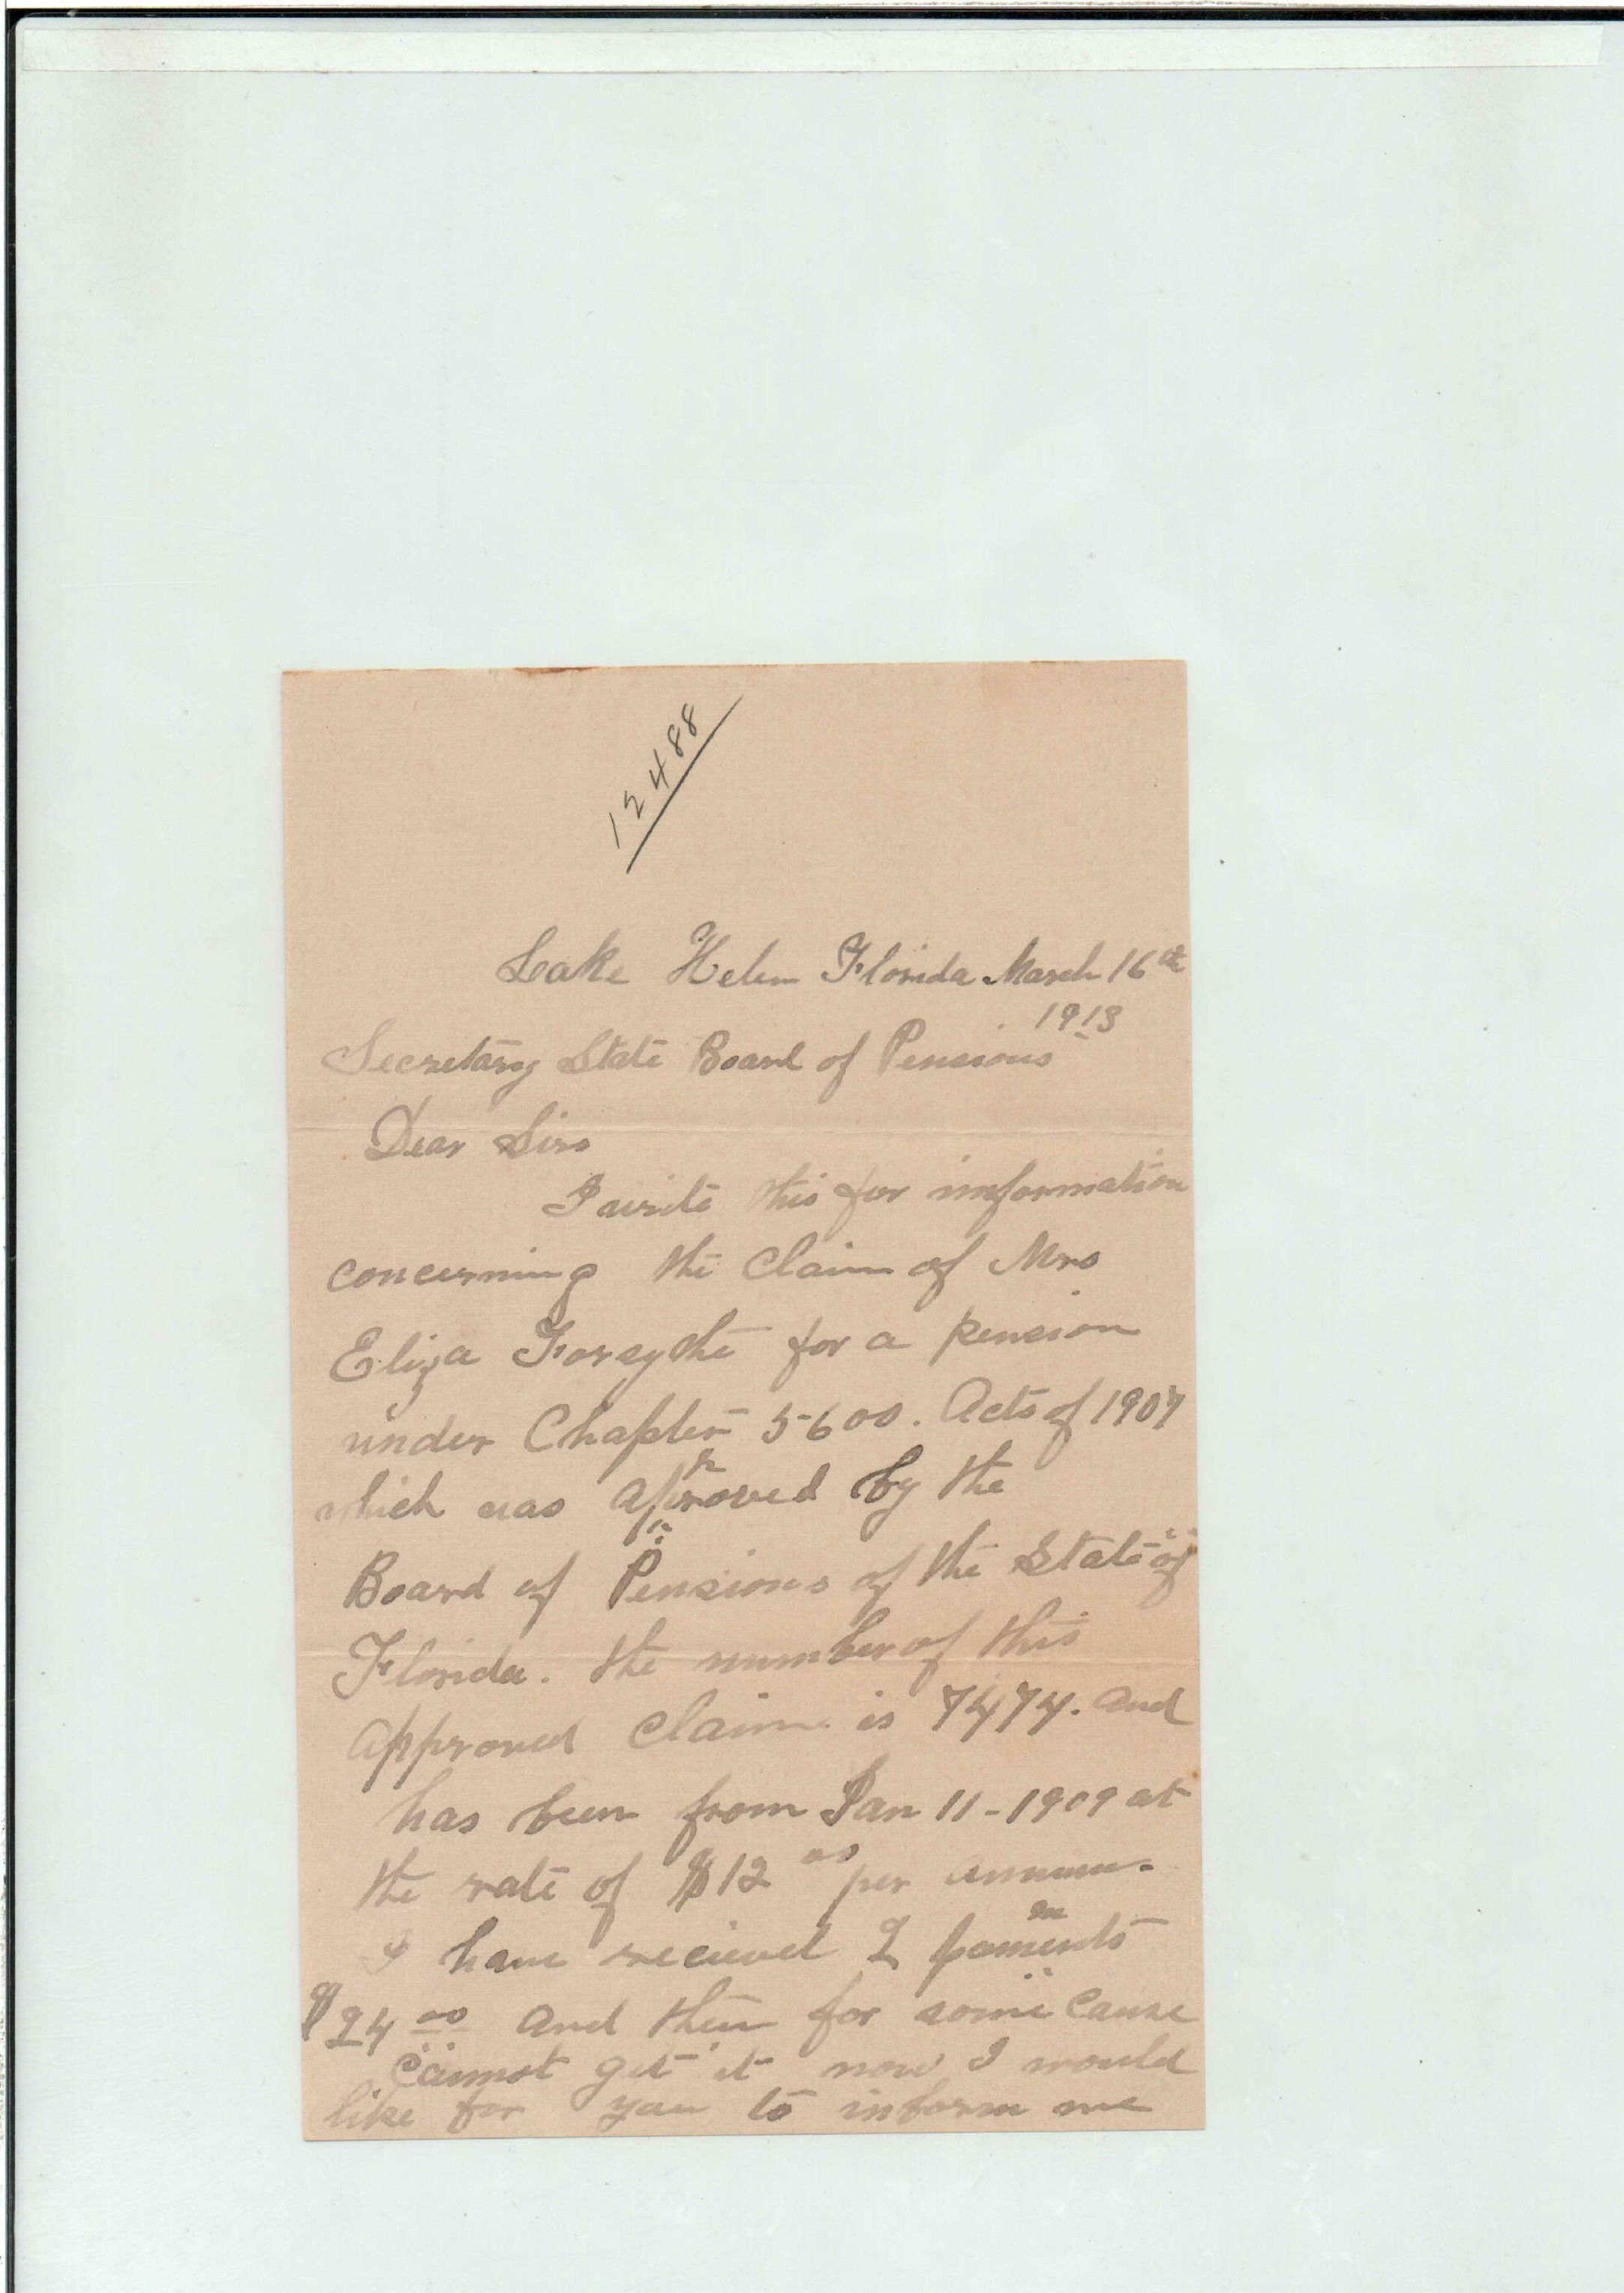 12488
Lake Helen Florida March 16th
1913
Secretary State Board of Pensions
Dear Sirs
I write this for information
concerning the Claim of Mrs
Eliza Forsythe for a pension
under Chapter 5600. Acts of 1907
which was approved by the
Board of Pensions of the State of
Florida. the number of this
approved Claim is 7474. and
has been from Jan 11-1909 at
the rate of $12 00 per annum.
I have recieved 2 payments
$24 00 and then for some Cause
Cannot get it now I would
like for you to inform me